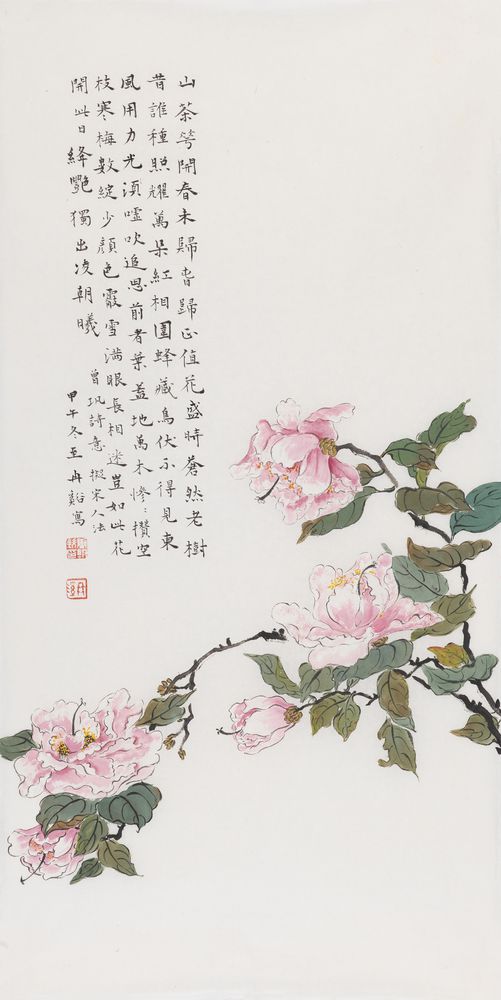 山茶花開春未歸春歸正值花盛時蒼然老樹
昔誰種照耀萬朵紅相圍蜂藏鳥伏不得見東
風用力光須噓吹追思前者葉蓋地萬木慘慘攢空
枝寒梅數綻少顏色霰雪滿眼長相迷豈如此花
開此日絳艷獨出凌朝曦
曾巩詩意 擬宋人法
甲午冬至冉谿寫